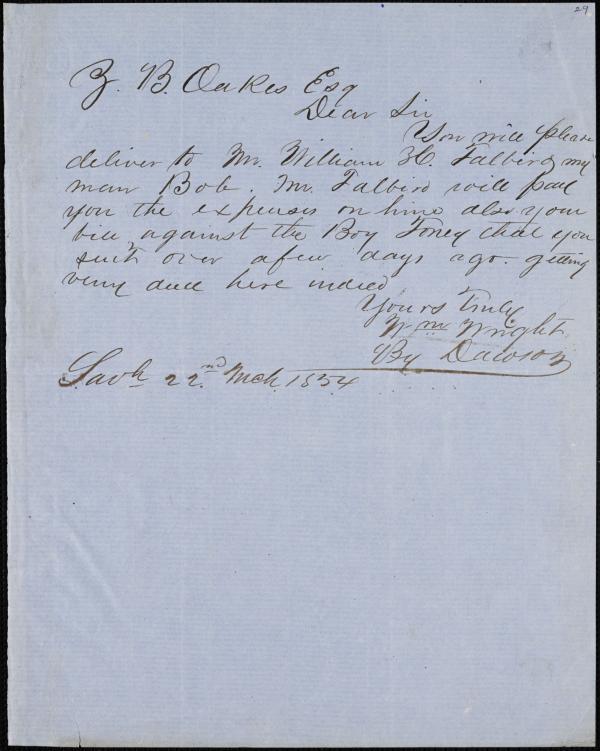 29
Z. B. Oakes Esq
Dear Sir
You will please
deliver to Mr. William H Talbird my
man Bob. Mr. Talbird will pay
you the expenses on him also your
bill against the Boy Toney that you
sent over a few days ago. getting
very dull here indeed
Yours Truly
Wm Wright
By Dawson
Savh 22nd Mch. 1854